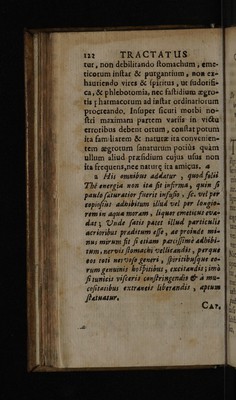 122 TRACTATUS
tur, non debilitando stomachum, eme-
ticorum instar & purgantium, non ex-
hauriendo vires & spiritus, ut sudorifi-
ca, & phlebotomia, nec fastidium ægro-
tis pharmacorum ad instar ordinariorum
procreando. Insuper sicuti morbi no-
stri maximam partem variis in victu
erroribus debent ortum, constat potum
ita familiarem & naturæ ita convenien-
tem ægrotum sanaturum potiùs quàm
ullum aliud præsidium cujus usus non
ita frequens, nec naturæ ita amicus. a
a His omnibus addatur, quod falii
Thé energia non ita sit infirma, quin si
paulo saturatior fuerit infusio, sc. vel per
copiosius adhibitum illud vel per longio-
rem in aqua moram, liquor emeticus eva-
dat; Unde satis patet illud particulis
acrioribus præditum esse, ac proinde mi-
nus mirum sit si etiam parcissimè adhibi-
tum, nervis stomachi vellicandis, perque
eos toti nervoso generi, spiritibusque eo-
rum genuinis hospitibus, excitandis; imò
si tunicis visceris constringendis & à mu-
cositatibus extraneis liberandis, aptum
statuatur.
CAP.